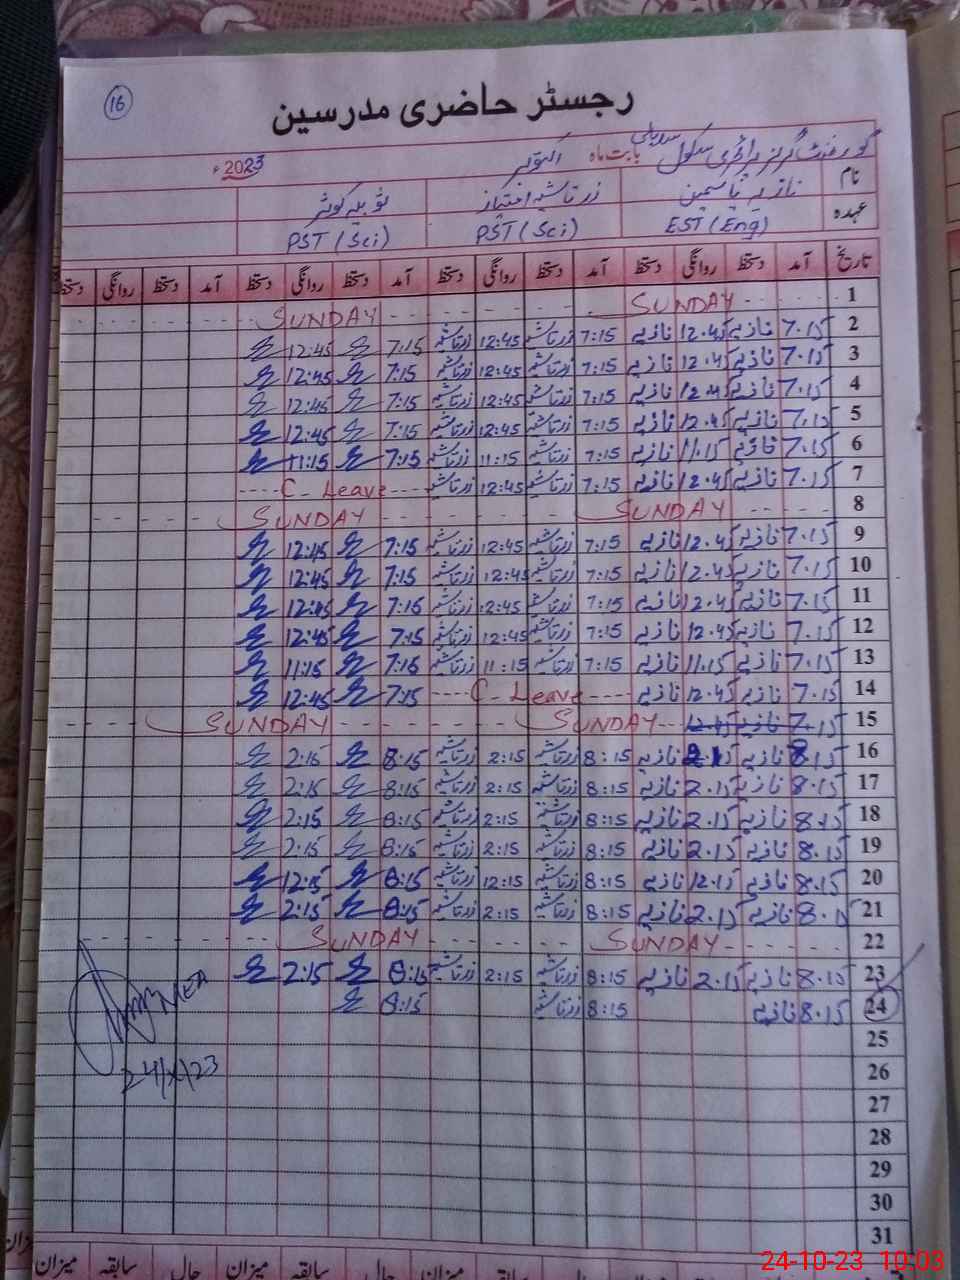 16
رجسٹر حاضری مدرسین
گورنمنٹ گرلز پرائمری سکول بابت ماہ اکتوبر 2023ء
نام نازیہ یاسمین زرتاشیہ امتیاز ثوبیہ کوثر
عہدہ EST (Eng) PST (Sci) PST (Sci)
تاریخ آمد دستخط روانگی دستخط آمد دستخط روانگی دستخط آمد دستخط روانگی دستخط آمد دستخط روانگی دستخط
1 SUNDAY SUNDAY
2 7.15 نازیہ 12.45 نازیہ 7:15 زرتاشیہ 12:45 زرتاشیہ 7:15 12:45
3 7.15 نازیہ 12.45 نازیہ 7:15 زرتاشیہ 12:45 زرتاشیہ 7:15 12:45
4 7.15 نازیہ 12.45 نازیہ 7:15 زرتاشیہ 12:45 زرتاشیہ 7:15 12:45
5 7.15 نازیہ 12.45 نازیہ 7:15 زرتاشیہ 12:45 زرتاشیہ 7:15 12:45
6 7.15 نازیہ 11.15 نازیہ 7:15 زرتاشیہ 11:15 زرتاشیہ 7:15 11:15
7 7.15 نازیہ 12.45 نازیہ 7:15 زرتاشیہ 12:45 زرتاشیہ C-Leave
8 SUNDAY SUNDAY
9 7.15 نازیہ 12.45 نازیہ 7:15 زرتاشیہ 12:45 زرتاشیہ 7:15 12:45
10 7.15 نازیہ 12.45 نازیہ 7:15 زرتاشیہ 12:45 زرتاشیہ 7:15 12:45
11 7.15 نازیہ 12.45 نازیہ 7:15 زرتاشیہ 12:45 زرتاشیہ 7:15 12:45
12 7.15 نازیہ 12.45 نازیہ 7:15 زرتاشیہ 12:45 زرتاشیہ 7:15 12:45
13 7.15 نازیہ 11.15 نازیہ 7:15 زرتاشیہ 11:15 زرتاشیہ 7:15 11:15
14 7.15 نازیہ 12.45 نازیہ C-Leave 7:15 12:45
15 7.15 نازیہ 12.45 SUNDAY SUNDAY
16 8.15 نازیہ 2.15 نازیہ 8:15 زرتاشیہ 2:15 زرتاشیہ 8:15 2:15
17 8.15 نازیہ 2.15 نازیہ 8:15 زرتاشیہ 2:15 زرتاشیہ 8:15 2:15
18 8.15 نازیہ 2.15 نازیہ 8:15 زرتاشیہ 2:15 زرتاشیہ 8:15 2:15
19 8.15 نازیہ 2.15 نازیہ 8:15 زرتاشیہ 2:15 زرتاشیہ 8:15 2:15
20 8.15 نازیہ 12.15 نازیہ 8:15 زرتاشیہ 12:15 زرتاشیہ 8:15 12:15
21 8.15 نازیہ 2.15 نازیہ 8:15 زرتاشیہ 2:15 زرتاشیہ 8:15 2:15
22 SUNDAY SUNDAY
23 8.15 نازیہ 2.15 نازیہ 8:15 زرتاشیہ 2:15 زرتاشیہ 8:15 2:15
24 8.15 نازیہ 8:15 زرتاشیہ 8:15
MEA
24/X/23
25
26
27
28
29
30
31
میزان سابقہ حال میزان سابقہ حال میزان
24-10-23 10:03